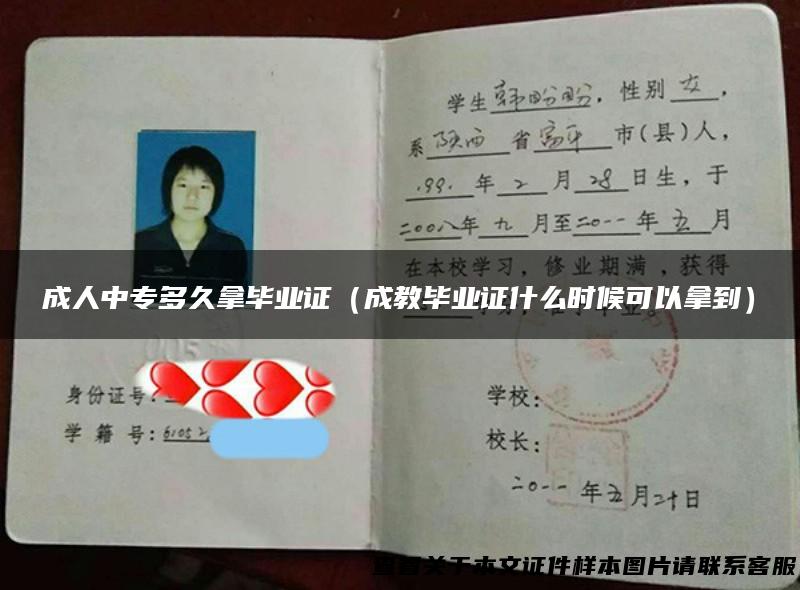 学生韩盼盼，性别女，
系陕西省富平市(县)人，
1991年2月28日生，于
二00八年九月至二0一一年五月
在本校学习，修业期满，获得
成人中专多久拿毕业证（成教毕业证什么时候可以拿到）
005
身份证号：
学 籍 号：61052
学校：
校长：
二0一一年五月二十日
查看关于本文证件样本图片请联系客服